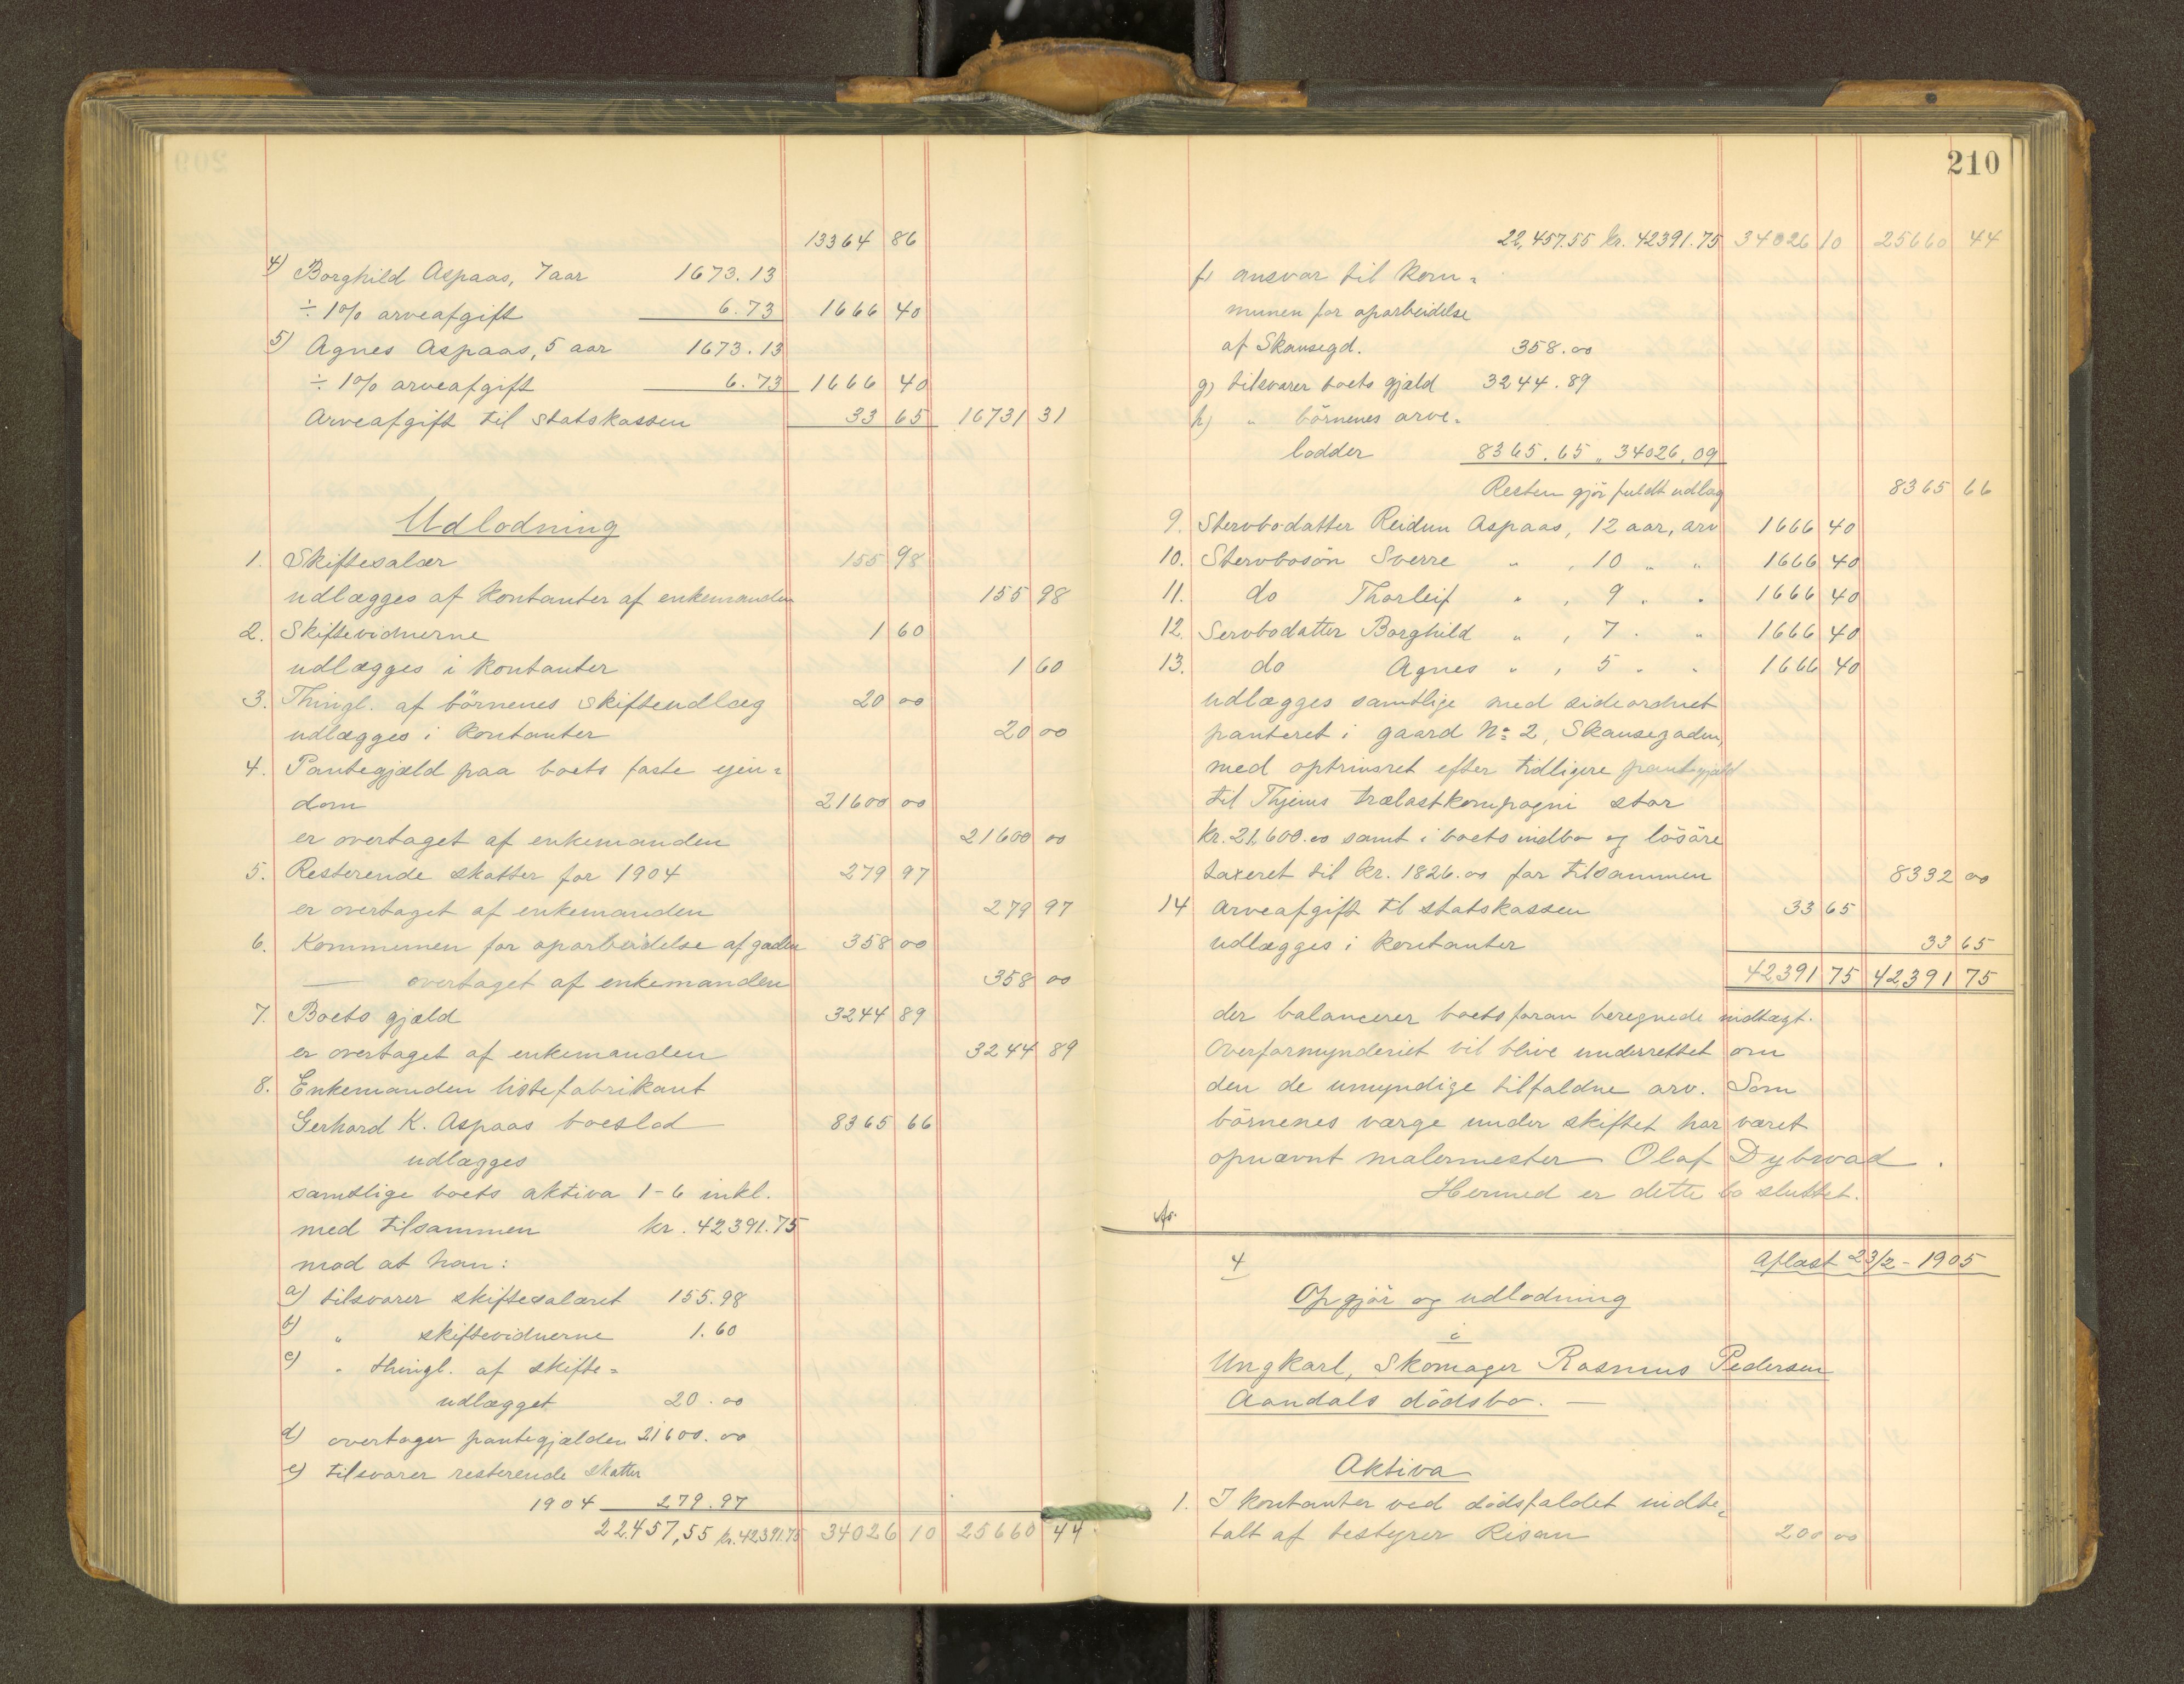 13364 86
4) Borghild Aspaas, 7 aar 1673.13
÷ 1% arveafgift 6.73 1666 40
5) Agnes Aspaas, 5 aar 1673.13
÷ 1% arveafgift 6.73 1666 40
Arveafgift til statskassen 33 65 16731 31
Udlodning
1. Skiftesalær 155 98
udlægges af kontanter af enkemanden 155 98
2. Skiftevidnerne 1 60
udlægges i kontanter 1 60
3. Thingl. af börnenes skifteudlæg 20 00
udlægges i kontanter 20 00
4. Pantegjæld paa boets faste ejen=
dom 21600 00
er overtaget af enkemanden 21600 00
5. Resterende skatter for 1904 279 97
er overtaget af enkemanden 279 97
6. Kommunen for oparbeidelse af gaden 358 00
— overtaget af enkemanden 358 00
7. Boets gjæld 3244 89
er overtaget af enkemanden 3244 89
8. Enkemanden listefabrikant
Gerhard K. Aspaas boeslod 8365 66
udlægges
samtlige boets aktiva 1-6 inkl.
med tilsammen kr. 42391.75
mod at han:
a) tilsvarer skiftesalæret 155.98
b) " skiftevidnerne 1.60
c) " thingl. af skifte=
udlægget 20.00
d) overtager pantegjælden 21600.00
e) tilsvarer resterende skatter
1904 279.97
22.457,55 kr. 42391.75 34026 10 25660 44
210
22,457.55 kr. 42391.75 34026 10 25660 44
f) ansvar til kom=
munen for oparbeidelse
af Skansegd. 358.00
g) tilsvarer boets gjæld 3244.89
h) " börnenes arve=
lodder 8365.65 " 34026.09
Resten gjör fuldt udlæg 8365 66
9. Stervbodatter Reidun Aspaas, 12 aar, arv 1666 40
10. Stervbosön Sverre " , 10 " " 1666 40
11. do Thorleif " , 9 " " 1666 40
12. Servbodatter Borghild " , 7 " " 1666 40
13. do Agnes " , 5 " " 1666 40
udlægges samtlige med sideordnet
panteret i gaard No 2, Skansegaden,
med optrinsret efter tidligere pantegjæld
til Thjems trælastkompagni stor
kr. 21,600.00 samt i boets indbo og lösöre
taxeret til kr. 1826.00 for tilsammen 8332 00
14 Arveafgift til statskassen 33 65
udlægges i kontanter 33 65
42391 75 42391 75
der balancerer boets foran beregnede indtægt.
Overformynderiet vil blive underrettet om
den de umyndige tilfaldne arv. Som
börnenes værge under skiftet har været
opnævnt malermester Olaf Dybwad.
Hermed er dette bo sluttet.
4 Aflæst 23/2 - 1905
Opgjör og udlodning
i
Ungkarl, Skomager Rasmus Pedersen
Aandals dödsbo. —
Aktiva
1. I kontanter ved dödsfaldet indbe=
talt af bestyrer Risan 200 00